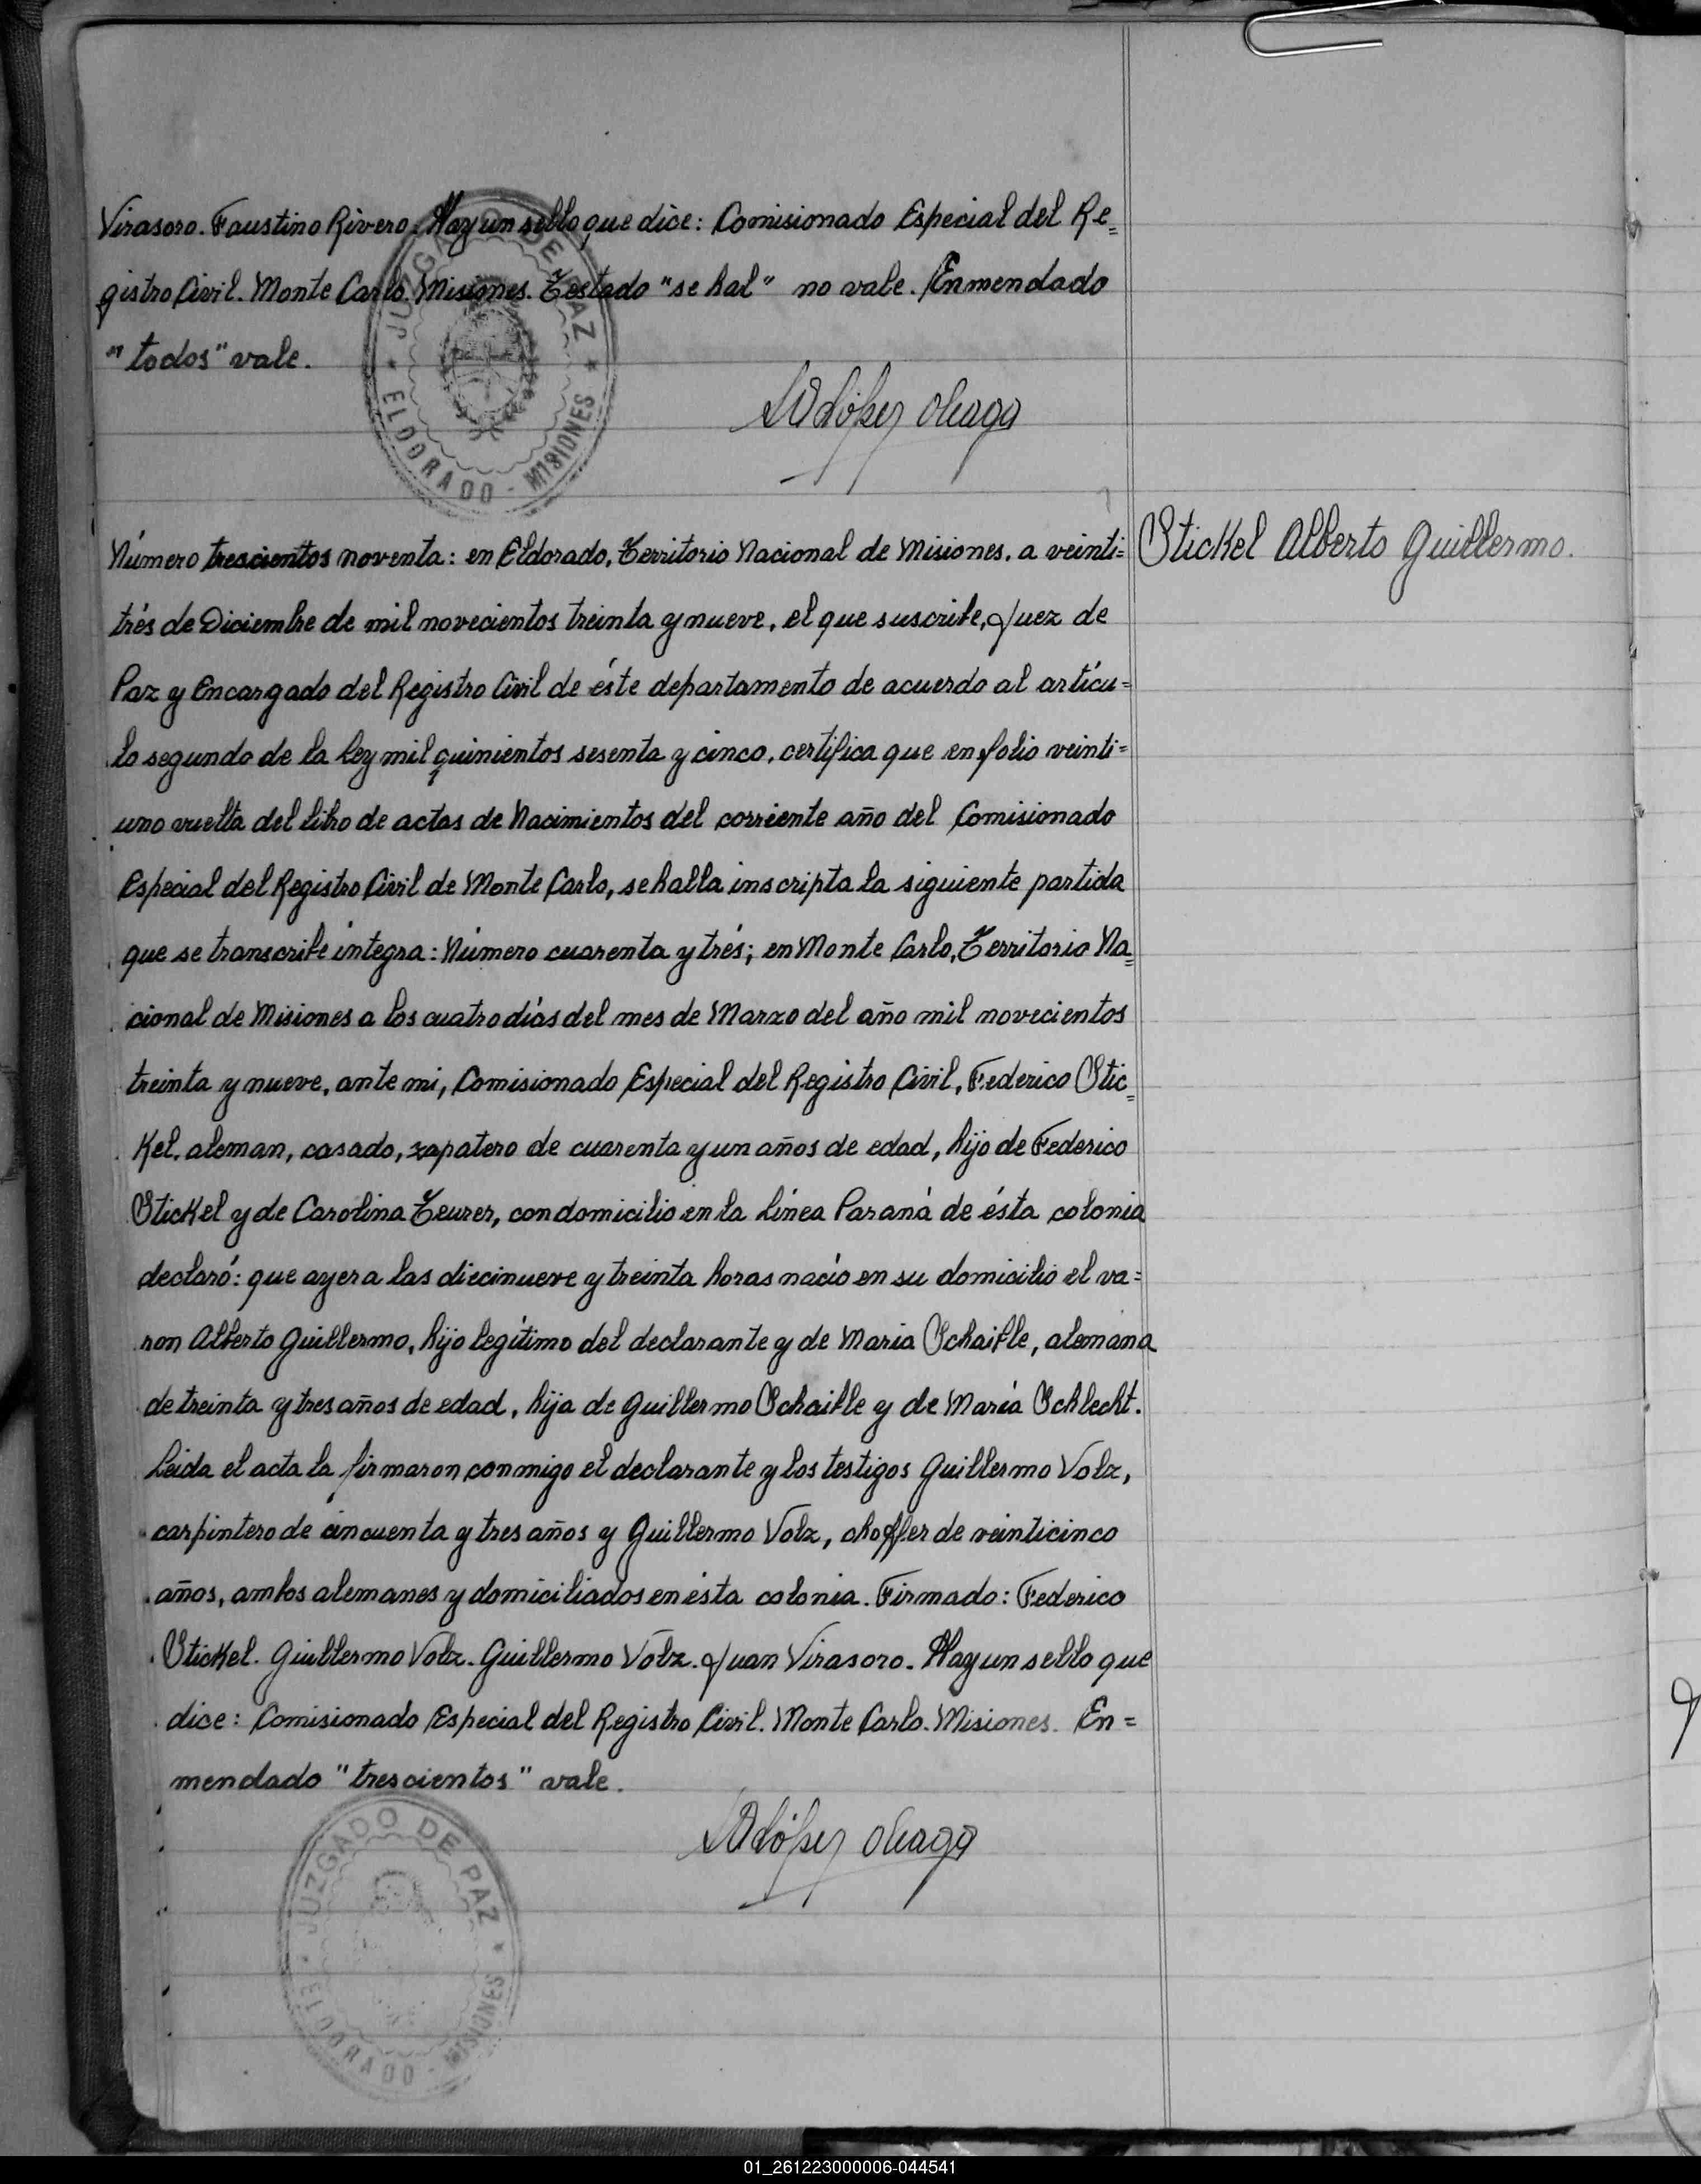 Virasoro. Faustino Rivero. Hay un sello que dice: Comisionado Especial del Re=
gistro Civil. Monte Carlo. Misiones. Testado "se hal" no vale. Enmendado
"todos" vale.
JUZGADO DE PAZ
ELDORADO - MISIONES
Número trescientos noventa: en Eldorado, Territorio Nacional de Misiones, a veinti=
Stickel Alberto Guillermo.
trés de Diciembre de mil novecientos treinta y nueve, el que suscribe, Juez de
Paz y Encargado del Registro Civil de éste departamento de acuerdo al artícu=
lo segundo de la Ley mil quinientos sesenta y cinco, certifica que en folio veinti=
uno vuelta del libro de actas de Nacimientos del corriente año del Comisionado
Especial del Registro Civil de Monte Carlo, se halla inscripta la siguiente partida
que se transcribe íntegra: Número cuarenta y trés; en Monte Carlo, Territorio Na=
cional de Misiones a los cuatro días del mes de Marzo del año mil novecientos
treinta y nueve, ante mi, Comisionado Especial del Registro Civil, Federico Stic=
kel, aleman, casado, zapatero de cuarenta y un años de edad, hijo de Federico
Stickel y de Carolina Teurer, con domicilio en la Línea Paraná de ésta colonia
declaró: que ayer a las diecinueve y treinta horas nació en su domicilio el va=
ron Alberto Guillermo, hijo legítimo del declarante y de Maria Schaible, alemana
de treinta y tres años de edad, hija de Guillermo Schaible y de María Schlecht.
Leida el acta la firmaron conmigo el declarante y los testigos Guillermo Volz,
carpintero de cincuenta y tres años y Guillermo Volz, choffer de veinticinco
años, ambos alemanes y domiciliados en ésta colonia. Firmado: Federico
Stickel. Guillermo Volz. Guillermo Volz. Juan Virasoro. Hay un sello que
dice: Comisionado Especial del Registro Civil. Monte Carlo. Misiones. En=
mendado "trescientos" vale.
JUZGADO DE PAZ
ELDORADO - MISIONES
01_261223000006-044541